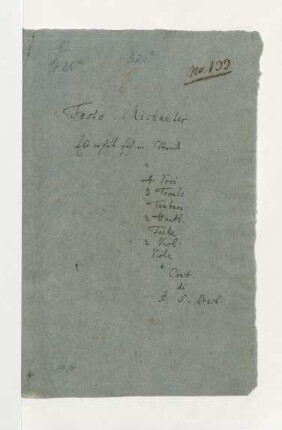 no. 199
Festo Michaelis
Es erhub sich ein Streit
4 Voci
3 Trombe
Tambure
2 Hautb.
2 Viol.
Viola
e
Cont.
di
J. S. Bach.